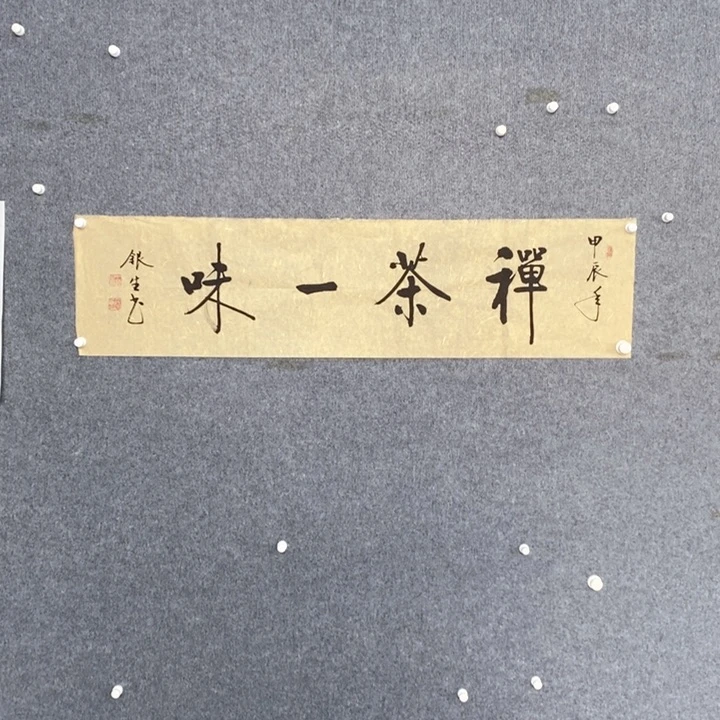 甲辰年
禪茶一味
銀生书